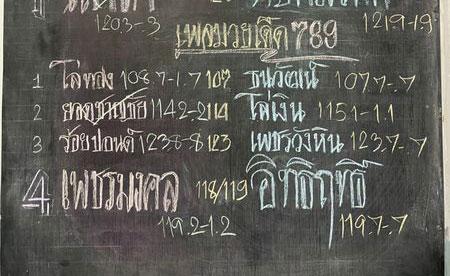 120.3-3 121.9-1.9
เพชรมวยเด็ด 789
1 โล่ทอง 108.7-1.7 107 ธนวัฒน์ 107.7-.7
2 ยอดขุนชัย 114.2-.2 114 โล่เงิน 115.1-1.1
3 ร้อยปอนด์ 123.8-.8 123 เพชรวังหิน 123.7-.7
4 เพชรมงคล 118/119 อิทธิฤทธิ์
119.2-1.2 119.7-.7